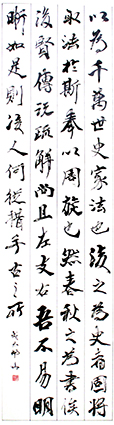 以为千萬世史家法也後之為史者固將
取法於斯奉以周旋也然春秋之為書後
後賢傳說疏解尚且左支右吾不易明
晰如是則後人何從藉手在之所